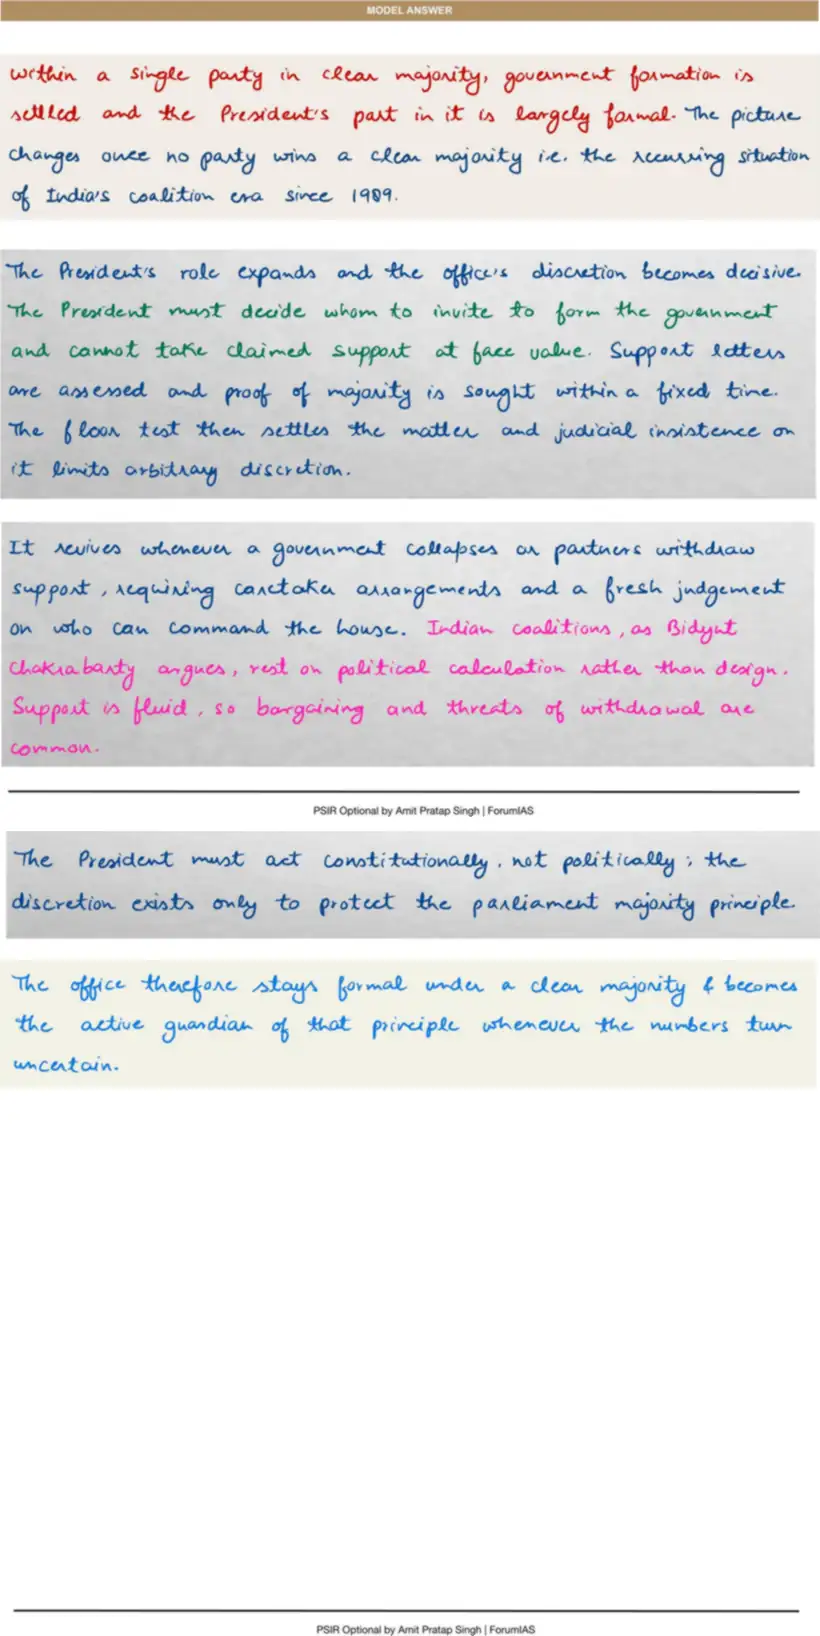 MODEL ANSWER
Within a single party in clear majority, government formation is
settled and the President's part in it is largely formal. The picture
changes once no party wins a clear majority i.e. the recurring situation
of India's coalition era since 1989.
The President's role expands and the office's discretion becomes decisive.
The President must decide whom to invite to form the government
and cannot take claimed support at face value. Support letters
are assessed and proof of majority is sought within a fixed time.
The floor test then settles the matter and judicial insistence on
it limits arbitrary discretion.
It revives whenever a government collapses or partners withdraw
support, requiring caretaker arrangements and a fresh judgement
on who can command the house. Indian coalitions, as Bidyut
Chakrabarty argues, rest on political calculation rather than design.
Support is fluid, so bargaining and threats of withdrawal are
common.
PSIR Optional by Amit Pratap Singh | ForumIAS
The President must act constitutionally, not politically; the
discretion exists only to protect the parliament majority principle.
The office therefore stays formal under a clear majority & becomes
the active guardian of that principle whenever the numbers turn
uncertain.
PSIR Optional by Amit Pratap Singh | ForumIAS